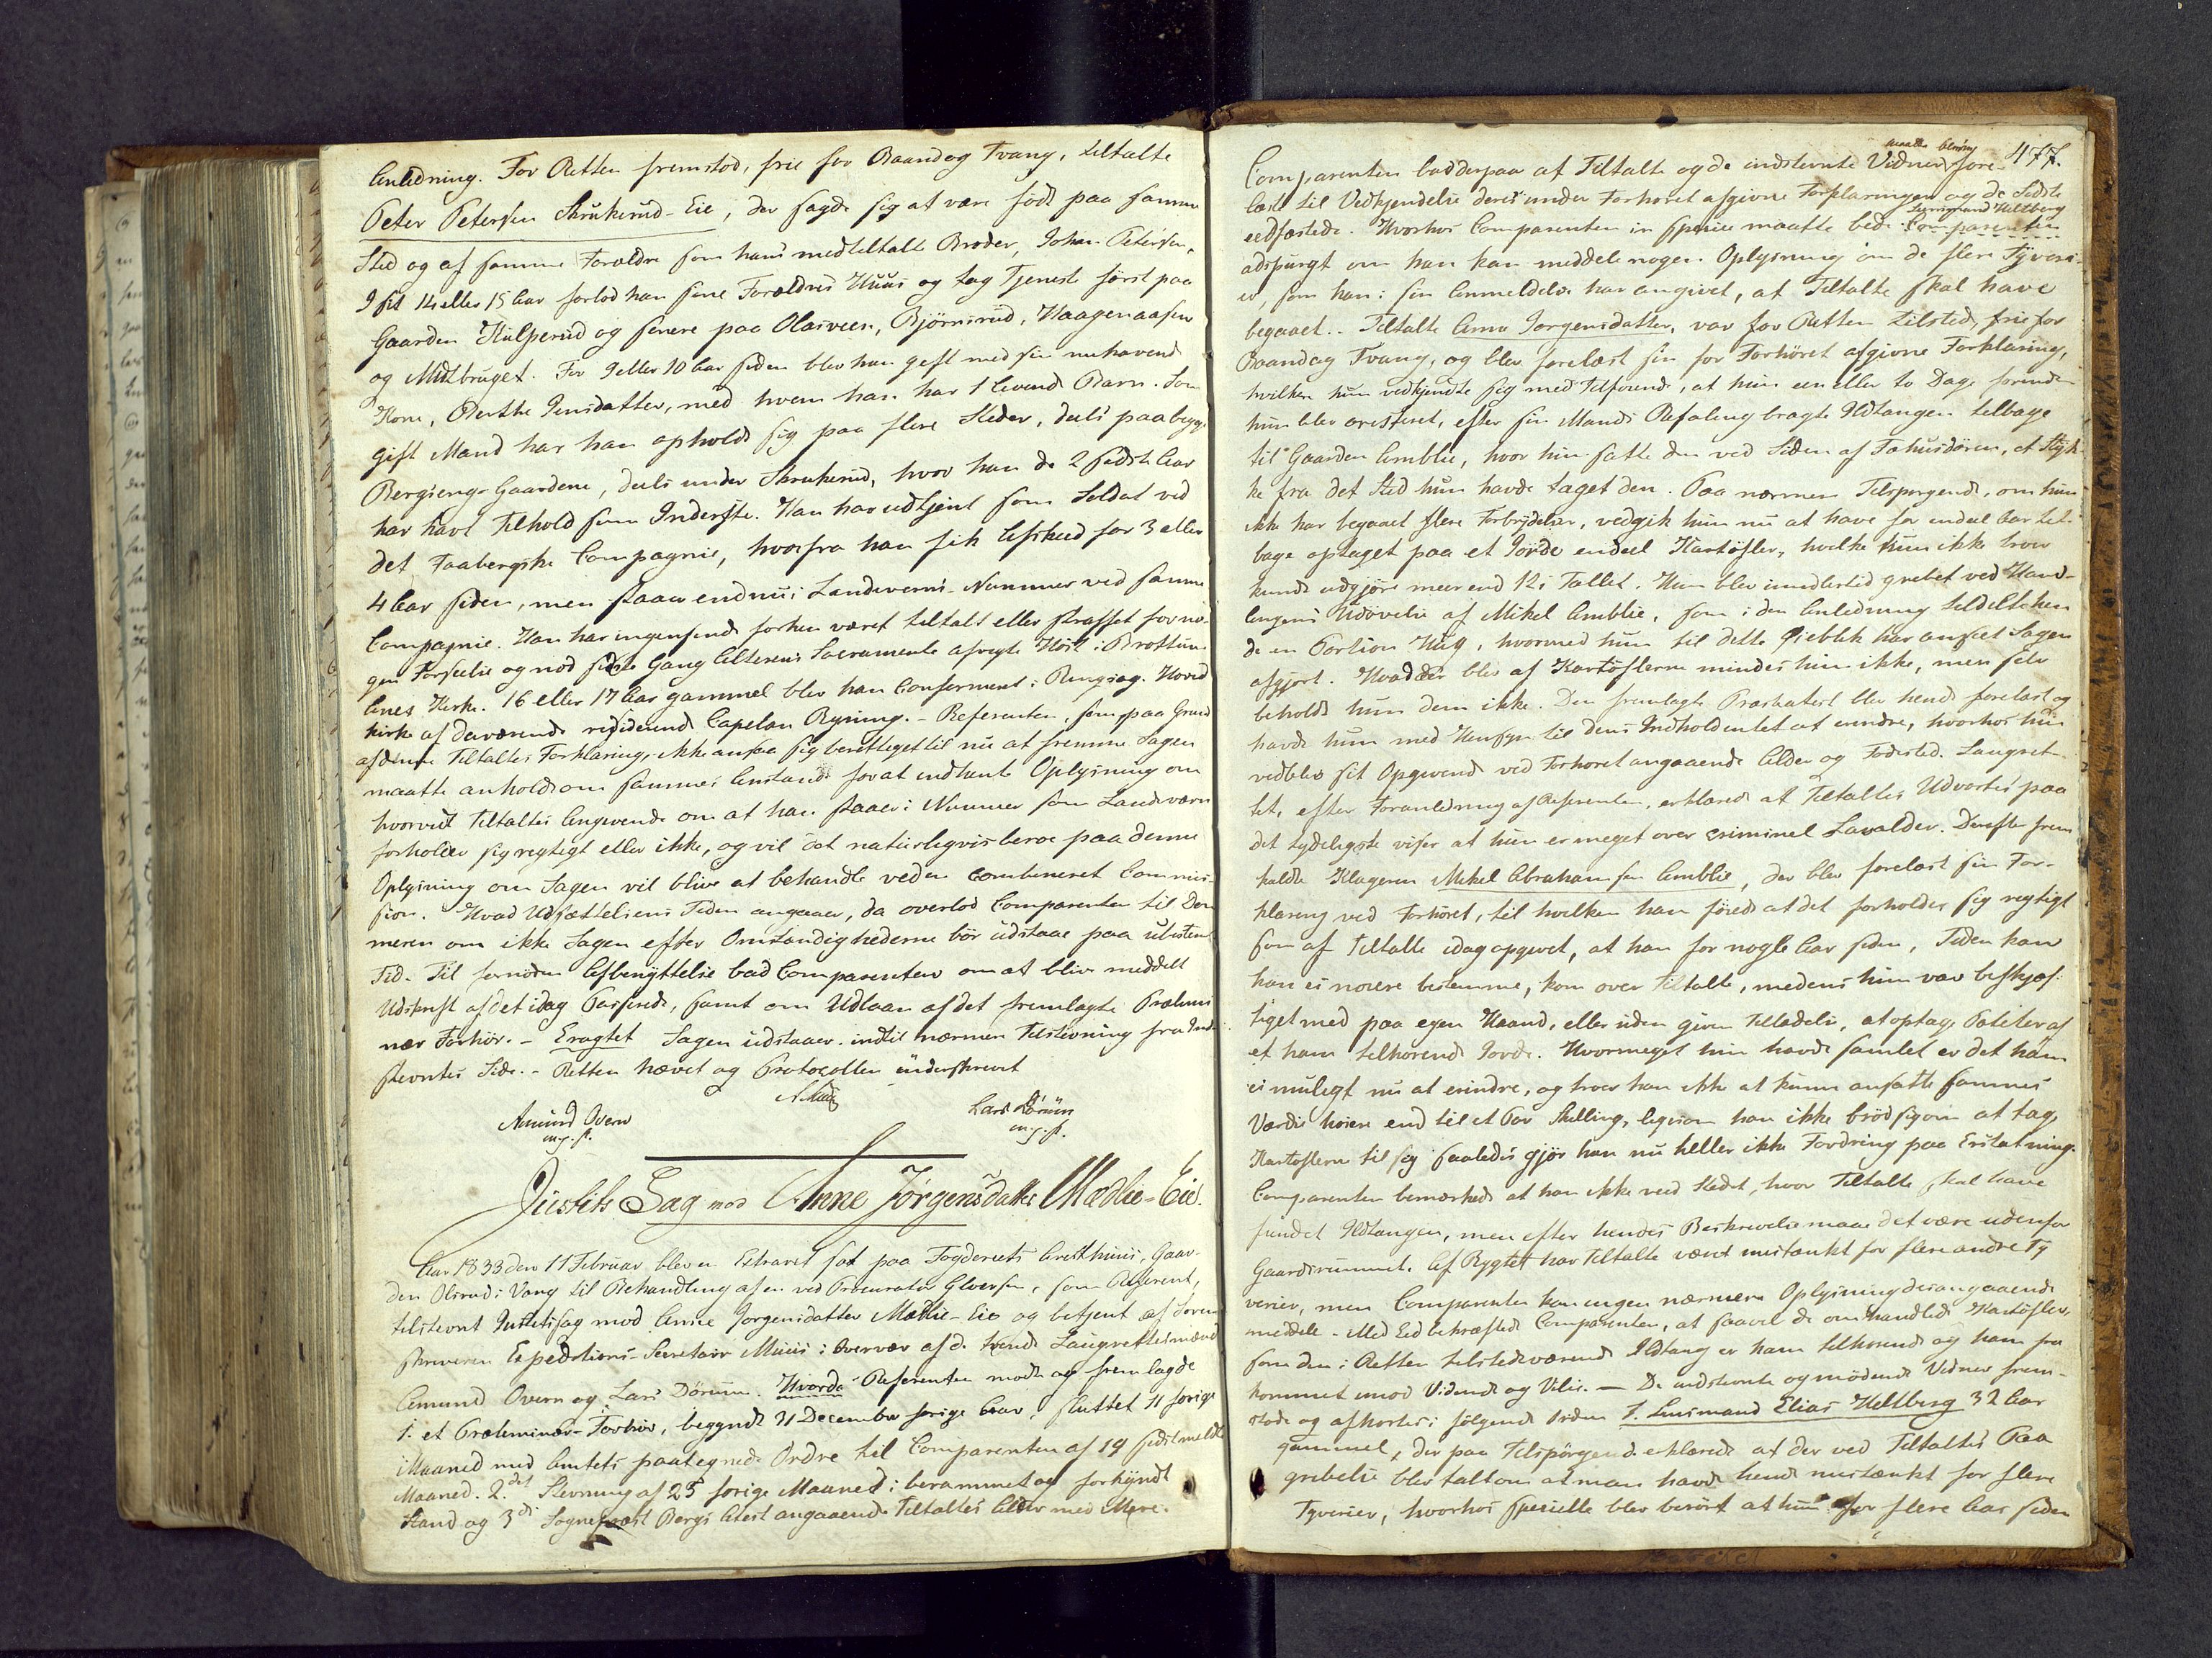 Anledning. For Retten fremstod, frie for Baand og Tvang, tiltalte
Peter Petersen Skrukerud-Eie, der sagde sig at være født paa samme
Sted og af samme Forældre som hans medtiltalte Broder, Johan Petersen.
I sit 14 eller 15 Aar forlod han sine Forældres Huus og tog Tjeneste først paa
Gaarden Kulperud og senere paa Olasveen, Bjørnsrud, Haagenaasen
og Midtbruget. For 9 eller 10 Aar siden blev han gift med sin nuhavende
Kone, Berthe Jensdatter, med hvem han har 1 levende Barn. Som
gift Mand har han opholdt sig paa flere Steder, deels paa
Bergsengs-Gaardene, deels under Skrukerud, hvor han de 2 sidste Aar
har havt Tilhold som Inderste. Han har udtjent som Soldat ved
det Faabergske Compagnie, hvorfra han fik Afskeed for 3 eller
4 Aar siden, men staaer endnu i Landeværns-Nummer ved samme
Compagnie. Han har ingensinde forhen været tiltalt eller straffet for no-
gen Forseelse og nød sidste Gang Alterens Sacramente afvigte Høst i Brøttum
Anex Kirke. 16 eller 17 Aar gammel blev han Confirmeret i Ringsager Hoved
kirke af daværende residerende Capelan Ryning. - Referenten, som paa Grund
af denne Tiltaltes Forklaring ikke ansaae sig berettiget til nu at fremme Sagen
maatte anholde om sammes Anstand for at indhente Oplysning om
hvorvidt Tiltaltes Angivende om at han staaer i Nummer som Landeværn
forholder sig rigtigt eller ikke, og vil det naturligvis beroe paa denne
Oplysning om Sagen vil blive at behandle ved en combineret Commis-
sion. Hvad Udsættelsens Tiden angaaer, da overlod Comparenten til Dom
meren om ikke Sagen efter Omstændighederne bør udstaae paa ubestemt
Tid. Til fornøden Afbenyttelse bad Comparenten om at blive meddelt
Udskrift af det idag Passerede, samt om Udlaan af det fremlagte Prælimi
nær Forhør. - Eragtet Sagen udstaaer indtil nærmere Tilstevning fra Ind-
stevntes Side. - Retten hævet og Protocollen underskrevet
Amund Overn Lars Dørum
m. p. P. m. p. P.
Justits Sag mod Anne Jørgensdatter Mælie-Eie.
Aar 1833 den 11 Februar blev en Extraret sat paa Fogderiets Arresthuus, Gaar-
den Olsrud i Vang til Behandling af en ved Procurator Gløersen, som Referent,
tilstevnt Justitssag mod Anne Jørgensdatter Mælie-Eie og betjent af Soren
skriveren Expeditions-Secretair Muus i Overvær af de tvende Laugrettesmænd
Amund Overn og Lars Dørum. Hvorda Referenten mødte og fremlagde
1. et Præliminær-Forhør, begyndt 31 December forige Aar, sluttet 11 forige
Maaned med Amtets paategnede Ordre til Comparenten af 19 sidstmeldte
Maaned. 2det Stevning af 25 forige Maaned i berammet og forkyndt
Stand og 3die Sogneprest Bergs Attest angaaende Tiltaltes Alder med Mere.
477.
maatte blive
Comparenten bad derpaa at Tiltalte og de indstevnte Vidner fore-
læst til Vedkjendelse deres under Forhøret afgivne Forklaringer og de Sidste
Lensmand Heltberg
eedfæstede. Hvorhos Comparenten in specie maatte bede Comparenten
adspurgt om han kan meddele nogen Oplysning om de flere Tyveri-
er, som han i sin Anmeldelse har angivet, at Tiltalte skal have
begaaet. Tiltalte Anne Jørgensdatter, var for Retten tilstede frie for
Baand og Tvang, og blev forelæst sin for Forhøret afgivne Forklaring,
hvilken hun vedkjendte sig med Tilføiende, at hun een eller to Dage forinden
hun blev arresteret, efter sin Mands Befaling bragte Ildtangen tilbage
til Gaarden Amblie, hvor hun satte den ved Siden af Fæhusdøren, et Styk-
ke fra det Sted hun havde taget den. Paa nærmere Tilspørgende, om hun
ikke har begaaet flere Forbrydelser, vedgik hun nu at have for endeel Aar til-
bage optaget paa et Jorde endeel Kartøfler, hvilke hun ikke troer
kunde udgjøre meer end 12 i Tallet. Hun blev imidlertid grebet ved Hand-
lingens Udøvelse af Mikel Amblie, som i den Anledning tildelte hen
de en Portion Hug, hvormed hun til dette Øieblik har anseet Sagen
afgjort. Hvad der blev af Kartøflerne mindes hun ikke, men selv
beholdt hun dem ikke. Den fremlagte Præsteatest blev hende forelæst og
havde hun med Hensyn til dens Indhold intet at erindre, hvorhos hun
vedblev sit Opgivende ved Forhøret angaaende Alder og Fødested. Laugret-
tet, efter Foranledning af Referenten, erklærede at Tiltaltes Udvortes paa
det tydeligste viser at hun er meget over criminel Lavalder. Derefter frem
kaldte Klageren Mikel Abrahamsen Amblie, der blev forelæst sin For-
klaring ved Forhøret, til hvilken han føiede at det forholder sig rigtigt
som af Tiltalte idag opgivet, at han for nogle Aar siden, Tiden kan
han ei nøiere bestemme, kom over Tiltalte, medens hun var beskjæf-
tiget med paa egen Haand, eller uden given Tilladelse, at optage Poteter af
et ham tilhørende Jorde. Hvormeget hun havde samlet er det ham
ei muligt nu at erindre, og troer han ikke at kunne ansætte sammes
Værdie høiere end til et Par Skilling, ligesom han ikke brød sig om at tage
Kartøflerne til sig saaledes gjør han nu heller ikke Fordring paa Erstatning.
Comparenten bemærkede at han ikke veed Stedet, hvor Tiltalte skal have
fundet Ildtangen, men efter hendes Beskrivelse maae det være udenfor
Gaardsrummet. Af Rygtet har Tiltalte været mistænkt for flere andre Ty
verier, men Comparenten kan ingen nærmere Oplysning desangaaende
meddele. Med Eed bekræftede Comparenten, at saavel de omhandlede Kartøfler,
som den i Retten tilstedeværende Ildtang er ham tilhørende og ham fra
kommet imod Vidende og Vilie. — De indstevnte og mødende Vidner frem-
stode og afhørtes i følgende Orden 1. Lensmand Elias Heltberg 32 Aar
gammel, der paa Tilspørgende erklærede at der ved Tiltaltes Paa
gribelse blev talt om at man havde hende mistænkt for flere
Tyverier, hvorhos specielle blev berørt at hun for flere Aar siden